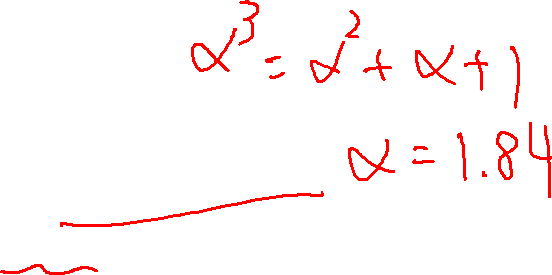 α³ = α² + α + 1
α = 1.84